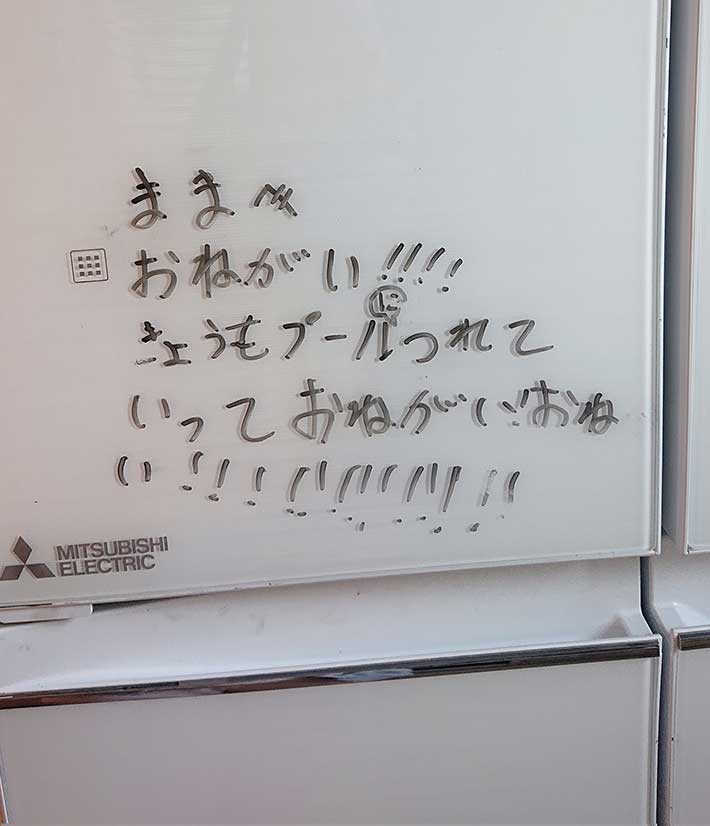 まま〰
おねがい!!!!
きょうもプールにつれて
いっておねがい!おね
い!!!!!!!!!!!!!
MITSUBISHI
ELECTRIC